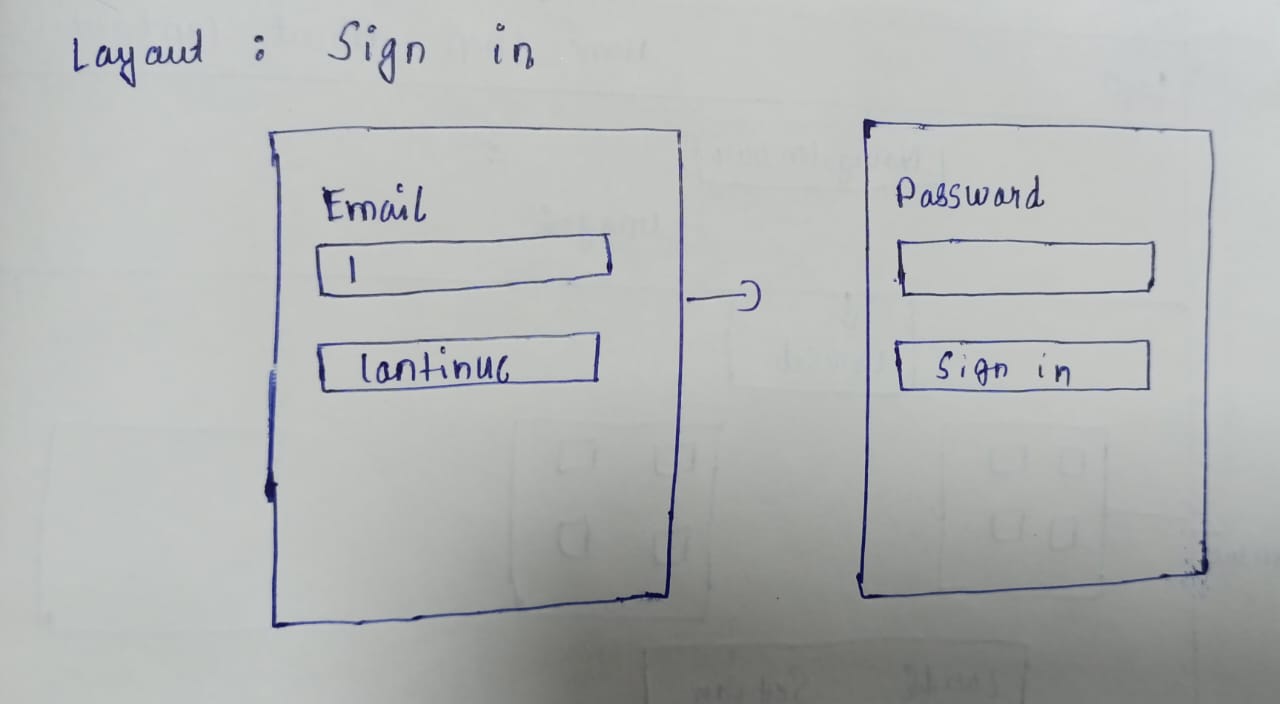 Layout : Sign in
Email
Continue
Password
Sign in